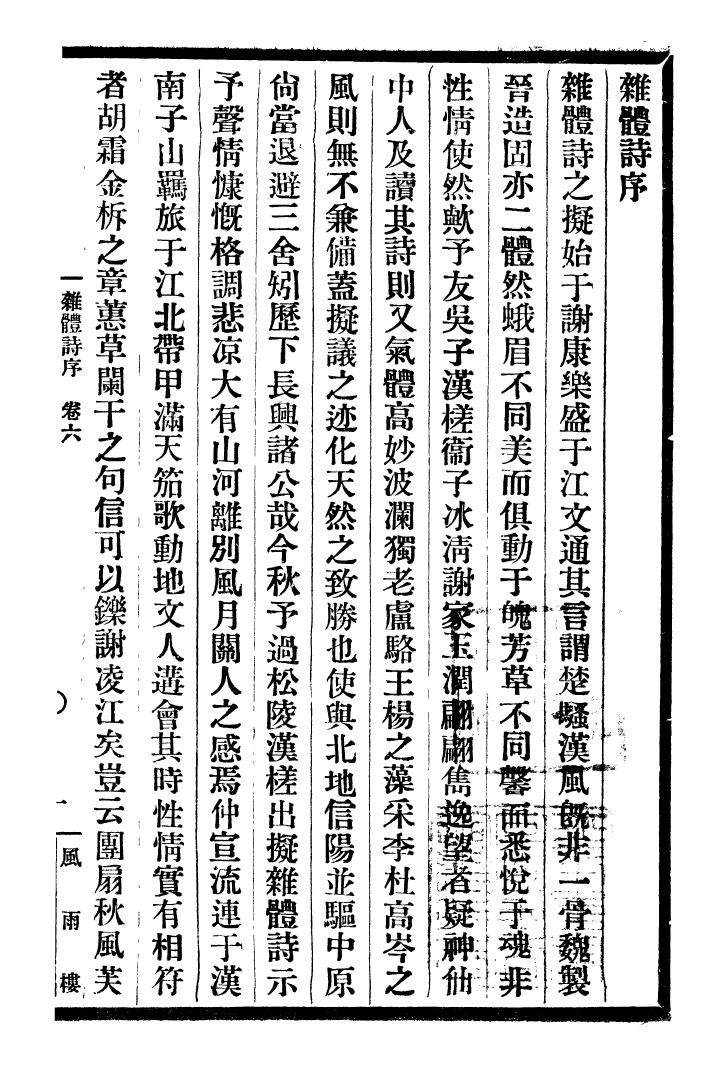 雜體詩序
雜體詩之擬始于謝康樂盛于江文通其言謂楚騷漢風旣非一骨魏製
晉造固亦二體然蛾眉不同美而俱動于魄芳草不同馨而悉悅于魂非
性情使然歟予友吳子漢槎衞子冰淸謝家玉潤翩翩雋逸望者疑神仙
中人及讀其詩則又氣體高妙波瀾獨老盧駱王楊之藻采李杜高岑之
風則無不兼備蓋擬議之迹化天然之致勝也使與北地信陽並驅中原
尙當退避三舍矧歷下長興諸公哉今秋予過松陵漢槎出擬雜體詩示
予聲情慷慨格調悲凉大有山河離別風月關人之感焉仲宣流連于漢
南子山羈旅于江北帶甲滿天笳歌動地文人遘會其時性情實有相符
者胡霜金柝之章蕙草闌干之句信可以鑠謝凌江矣豈云團扇秋風芙
雜體詩序 卷六
一
風雨樓